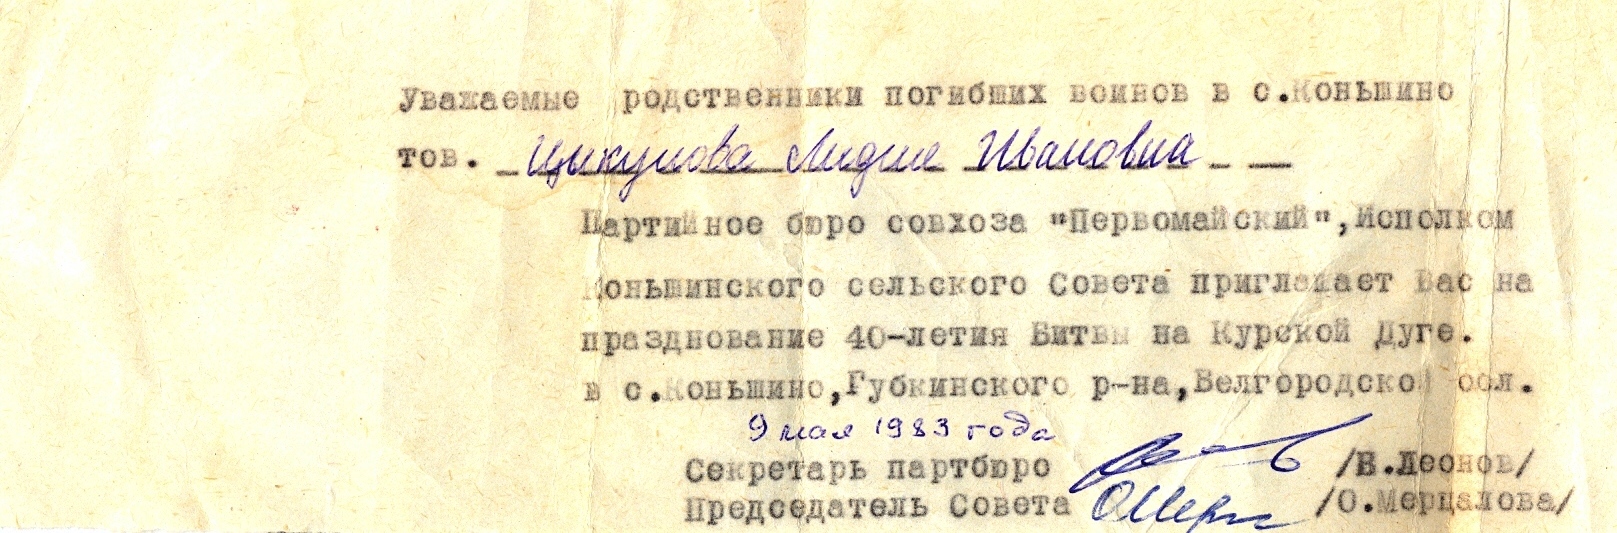 Уважаемые родственники погибших воинов в с.Коньшино
тов. Цикунова Лидие Ивановна
Партийное бюро совхоза "Первомайский", Исполком
Коньшинского сельского Совета приглашает Вас на
празднование 40-летия Битвы на Курской Дуге.
в с.Коньшино,Губкинского р-на,Белгородской обл.
9 мая 1983 года
Секретарь партбюро /В.Леонов/
Председатель Совета /О.Мерцалова/